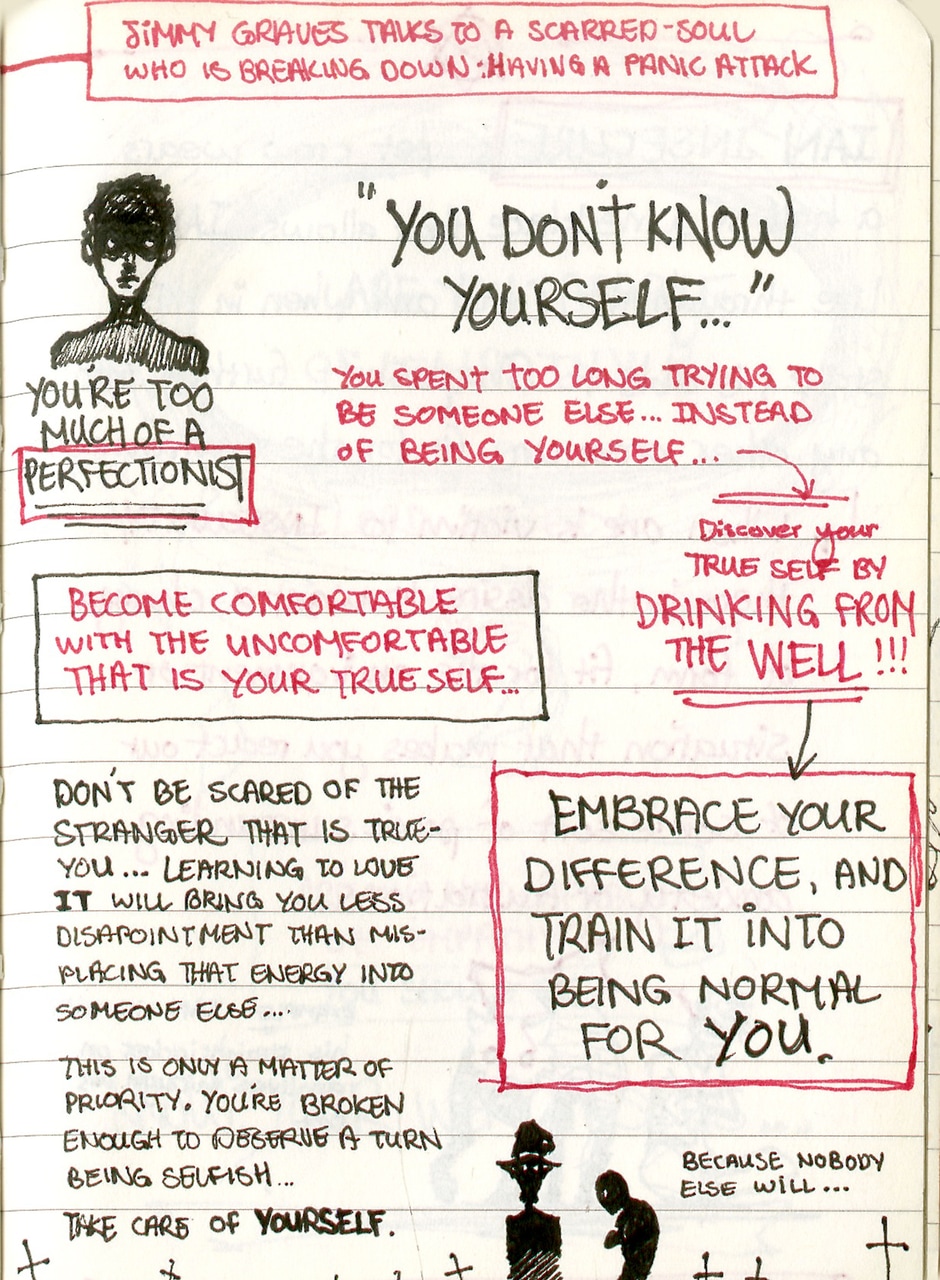 JIMMY GRAVES TALKS TO A SCARRED-SOUL
WHO IS BREAKING DOWN: HAVING A PANIC ATTACK
"YOU DON'T KNOW
YOURSELF..."
YOU'RE TOO
MUCH OF A
PERFECTIONIST
YOU SPENT TOO LONG TRYING TO
BE SOMEONE ELSE... INSTEAD
OF BEING YOURSELF...
Discover your
TRUE SELF BY
DRINKING FROM
THE WELL!!!
BECOME COMFORTABLE
WITH THE UNCOMFORTABLE
THAT IS YOUR TRUE SELF...
EMBRACE YOUR
DIFFERENCE, AND
TRAIN IT INTO
BEING NORMAL
FOR YOU.
DON'T BE SCARED OF THE
STRANGER THAT IS TRUE-
YOU... LEARNING TO LOVE
IT WILL BRING YOU LESS
DISAPOINTMENT THAN MIS-
PLACING THAT ENERGY INTO
SOMEONE ELSE...
THIS IS ONLY A MATTER OF
PRIORITY. YOU'RE BROKEN
ENOUGH TO DESERVE A TURN
BEING SELFISH...
TAKE CARE OF YOURSELF.
BECAUSE NOBODY
ELSE WILL...